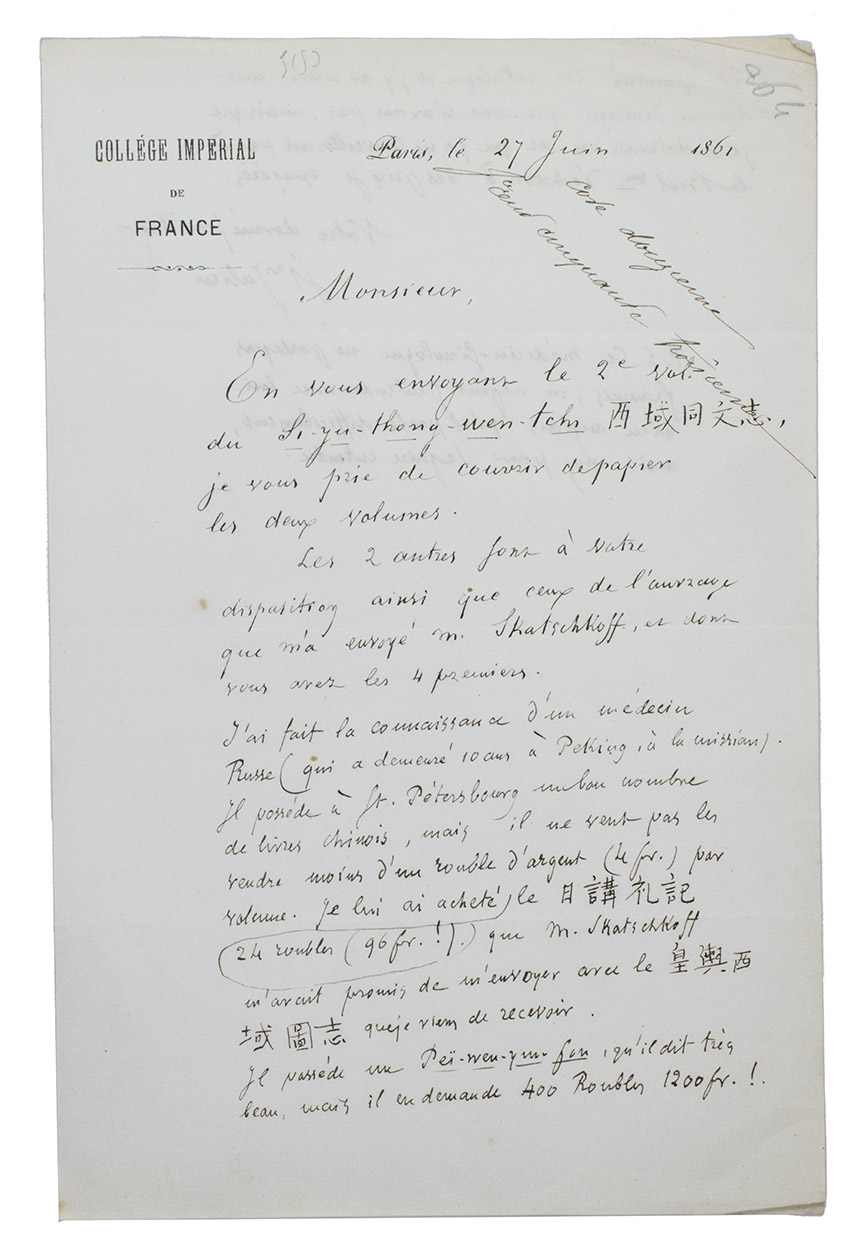 COLLÉGE IMPÉRIAL
DE
FRANCE
Paris, le 27 Juin 1861
cote douzieme
cent cinquante troisieme
Monsieur,
En vous envoyant le 2e vol.
du Si-yu-thong-wen-tchi 西域同文志,
je vous prie de couvrir de papier
les deux volumes.
Les 2 autres sont à votre
disposition ainsi que ceux de l'ouvrage
que m'a envoyé M. Skatschkoff, et dont
vous avez les 4 premiers.
J'ai fait la connaissance d'un médecin
Russe (qui a demeuré 10 ans à Peking, à la mission).
Il possède à St. Pétersbourg un bon nombre
de livres chinois, mais il ne veut pas les
vendre moins d'un rouble d'argent (4 fr.) par
volume. Je lui ai acheté le 日講礼記
24 roubles (96 fr.!) que M. Skatschkoff
m'avait promis de m'envoyer avec le 皇輿西
域圖志 que je viens de recevoir.
Il possède un Peï-wen-yun-fou, qu'il dit très
beau, mais il en demande 400 Roubles 1200 fr.!.